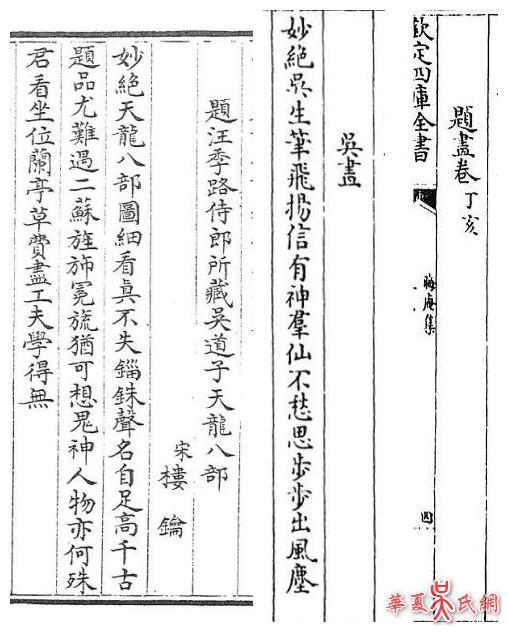 題畫卷丁亥
欽定四庫全書 晦庵集 四
吳畫
妙絕吳生筆飛揚信有神羣仙不愁思步步出風塵
題汪季路侍郎所藏吳道子天龍八部
宋樓鑰
妙絕天龍八部圖細看眞不失錙銖聲名自足高千古
題品尤難遇二蘇旌斾冕旒猶可想鬼神人物亦何殊
君看坐位蘭亭草費盡工夫學得無
華夏吴氏網